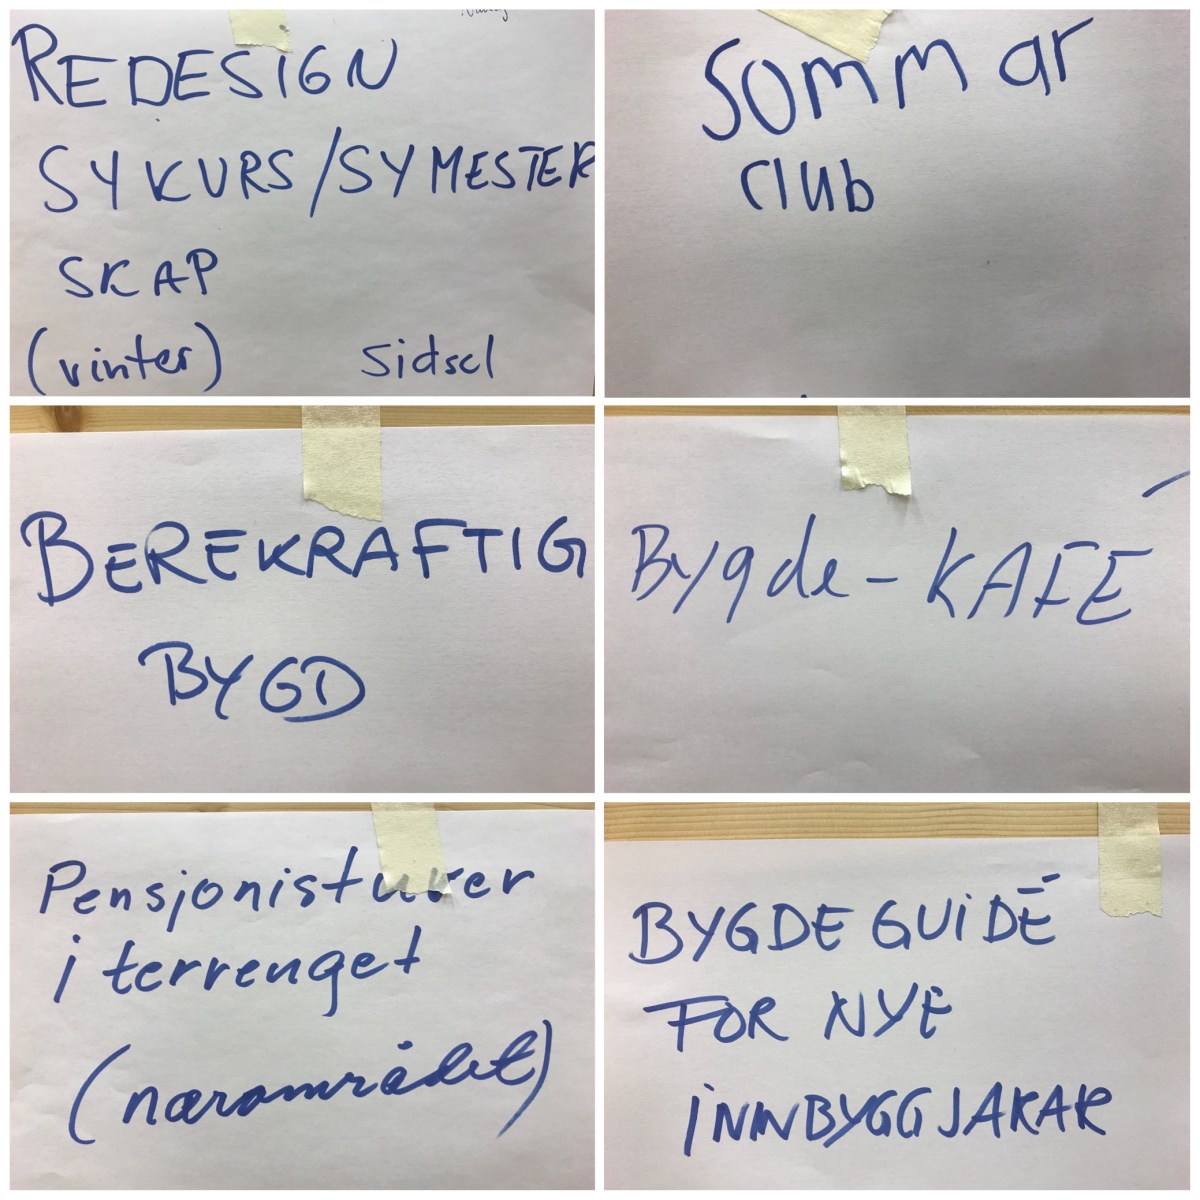 REDESIGN
SYKURS/SYMESTER
SKAP
(vinter) Sidsel
Sommar
club
BEREKRAFTIG
BYGD
Bygde-KAFÉ
Pensjonistturer
i terrenget
(nærområdet)
BYGDEGUIDE
FOR NYE
INNBYGGJARAR